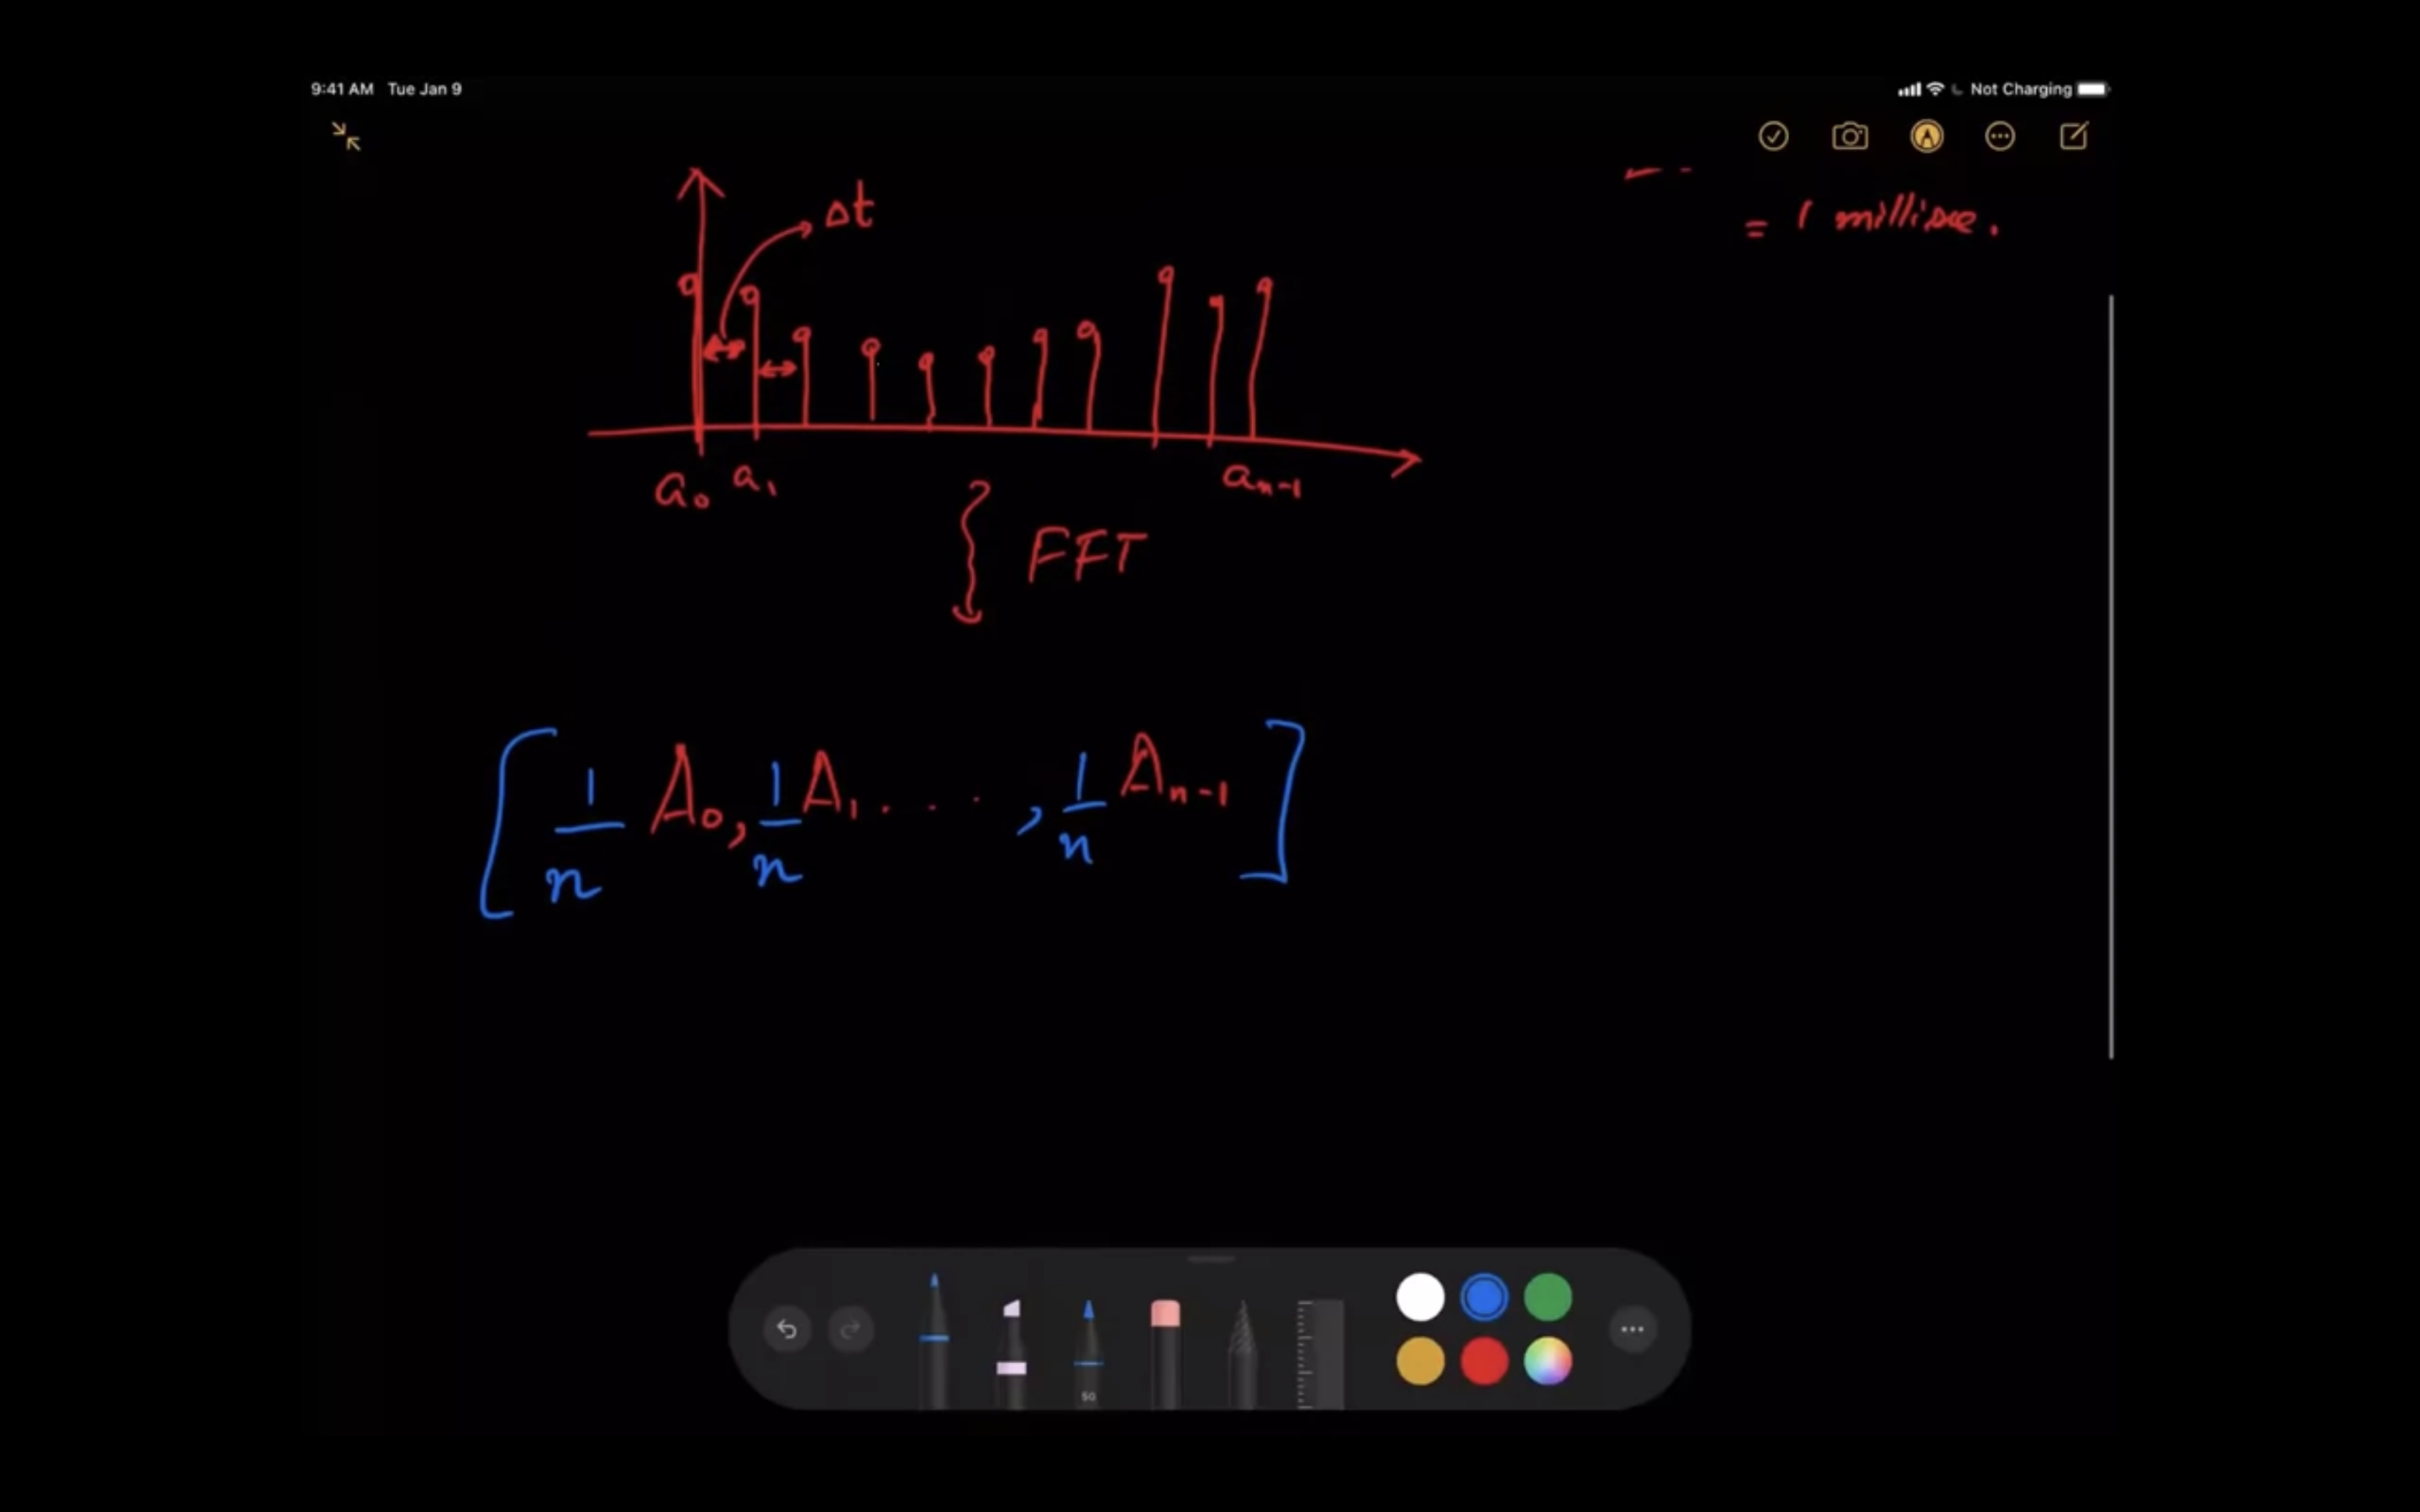 9:41 AM Tue Jan 9
Not Charging
Δt
= 1 millisec.
a₀ a₁ aₙ₋₁
FFT
[ 1/n A₀, 1/n A₁ . . . , 1/n Aₙ₋₁ ]
50